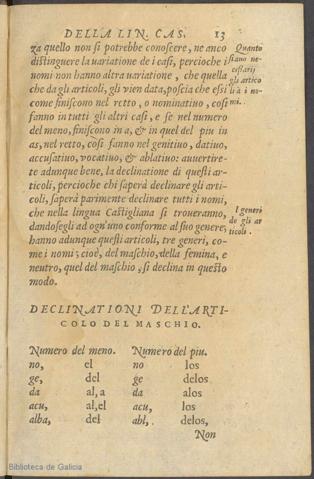 DELLA LIN. CAS. 13
za quello non si potrebbe conoscere, ne anco
distinguere la uariatione de i casi, percioche i
nomi non hanno altra uariatione, che quella
che da gli articoli, gli vien data, poscia che essi
come finiscono nel retto, o nominatiuo, cosi
fanno in tutti gli altri casi, e se nel numero
del meno, finiscono in a, & in quel del piu in
as, nel retto, cosi fanno nel genitiuo, datiuo,
accusatiuo, vocatiuo, & ablatiuo: auuertire-
te adunque bene, la declinatione di questi ar-
ticoli, percioche chi saperà declinare gli arti-
coli, saperà parimente declinare tutti i nomi,
che nella lingua Castigliana si troueranno,
dandosegli ad ogn'uno conforme al suo genere,
hanno adunque questi articoli, tre generi, co-
me i nomi, cioè, del maschio, della femina, e
neutro, quel del maschio, si declina in questo
modo.
Quanto
siano ne-
cessarij
gli artico
li à i no-
mi.
I generi
de gli ar
ticoli.
DECLINATIONI DELL'ARTI-
COLO DEL MASCHIO.
Numero del meno. Numero del piu.
no, el no los
ge, del ge delos
da al, a da alos
acu, al, el acu, los
alba, del abl, delos,
Non
Biblioteca de Galicia